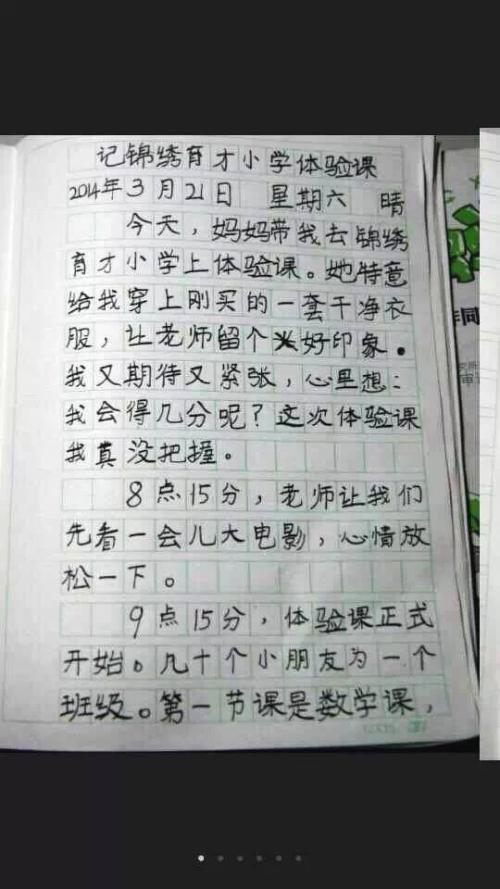 记锦绣育才小学体验课
2014年3月21日 星期六 晴
今天，妈妈带我去锦绣
育才小学上体验课。她特意
给我穿上刚买的一套干净衣
服，让老师留个好印象。
我又期待又紧张，心里想：
我会得几分呢？这次体验课
我真没把握。
8点15分，老师让我们
先看一会儿大电影，心情放
松一下。
9点15分，体验课正式
开始。几十个小朋友为一个
班级。第一节课是数学课，